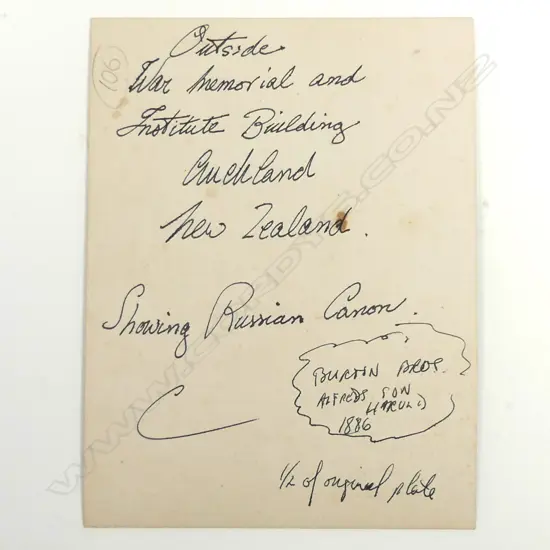 106
Outside
War Memorial and
Institute Building
Auckland
New Zealand.
Showing Russian Canon.
BURTON BROS.
ALFREDS SON
HAROLD
1886
1/2 of original plate